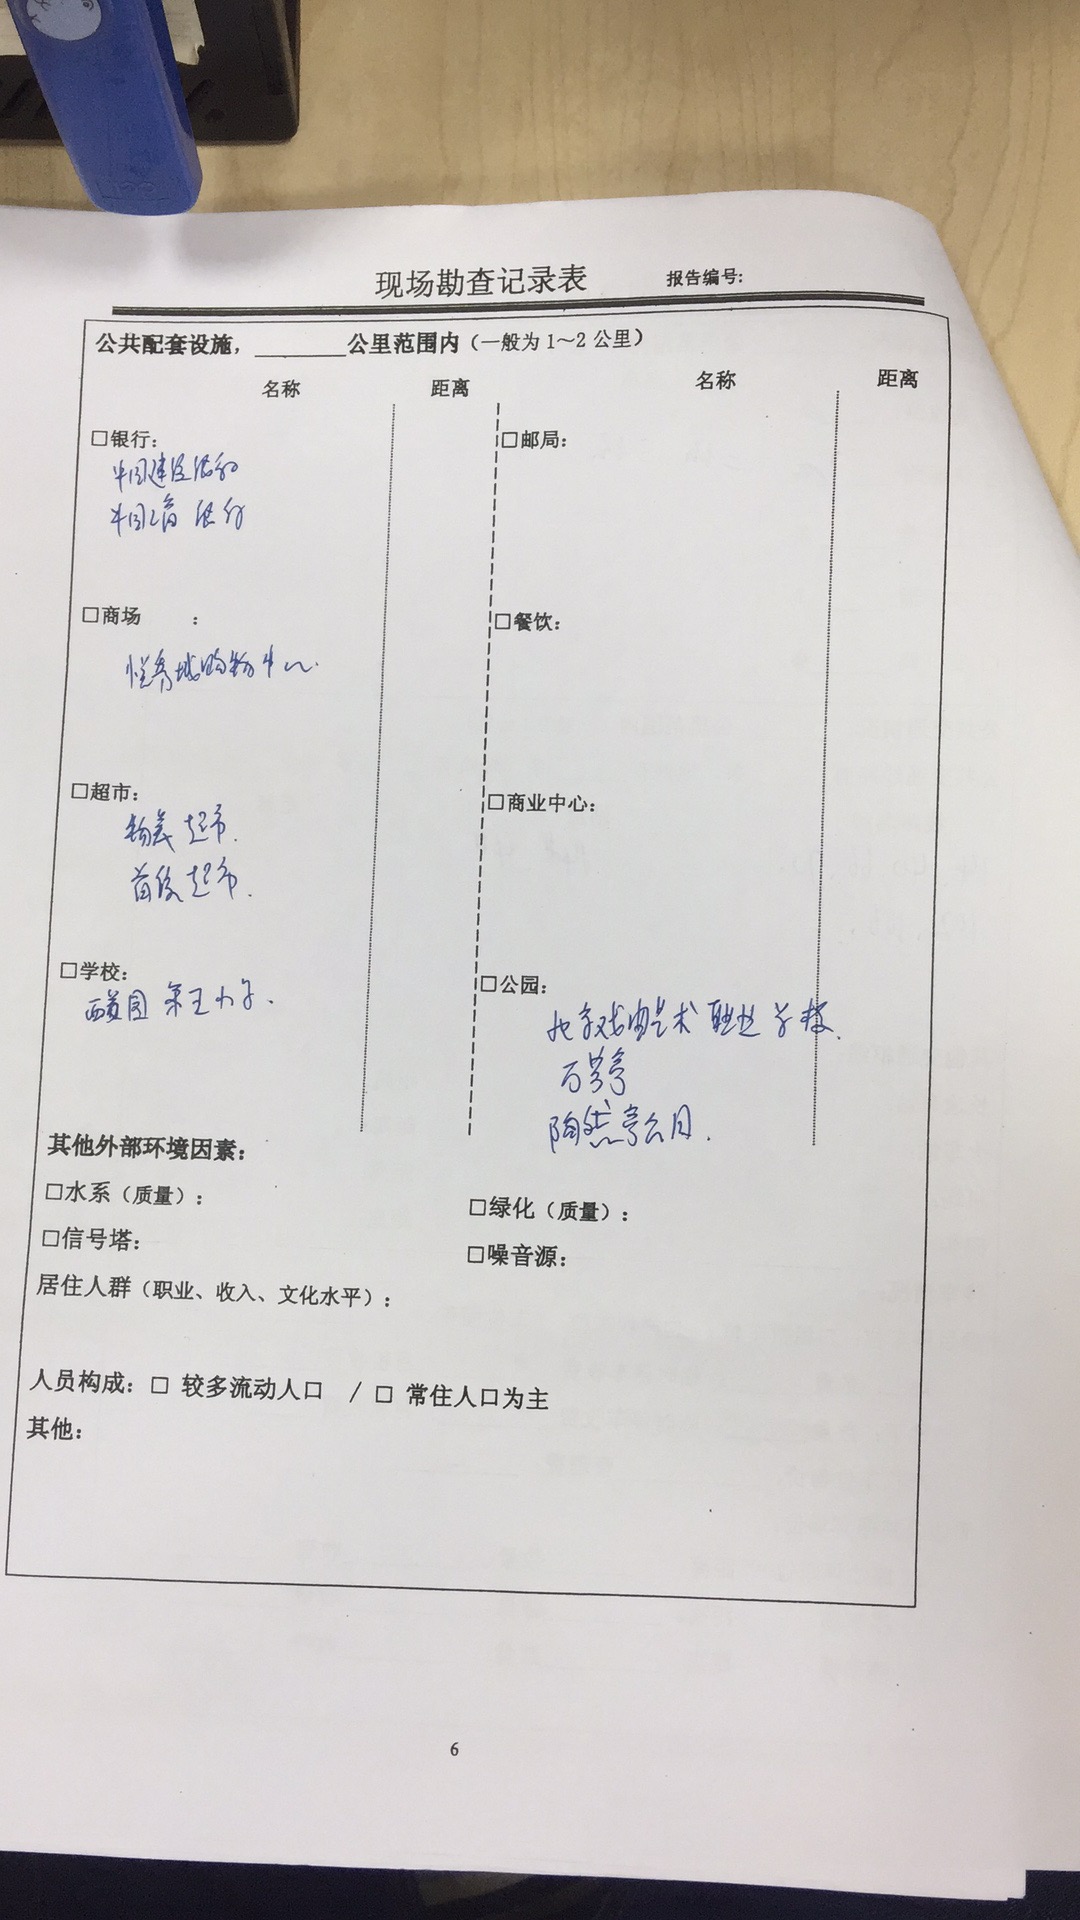 现场勘查记录表 报告编号:
公共配套设施，________公里范围内（一般为 1～2 公里）
名称 距离 名称 距离
□银行： □邮局：
中国建设银行
中国工商银行
□商场 ： □餐饮：
购物中心.
□超市： □商业中心：
物美超市.
首航超市.
□学校： □公园：
第五小学.
北京戏曲艺术职业学校.
万芳亭
陶然亭公园.
其他外部环境因素：
□水系（质量）： □绿化（质量）：
□信号塔： □噪音源：
居住人群（职业、收入、文化水平）：
人员构成：□ 较多流动人口 / □ 常住人口为主
其他：
6